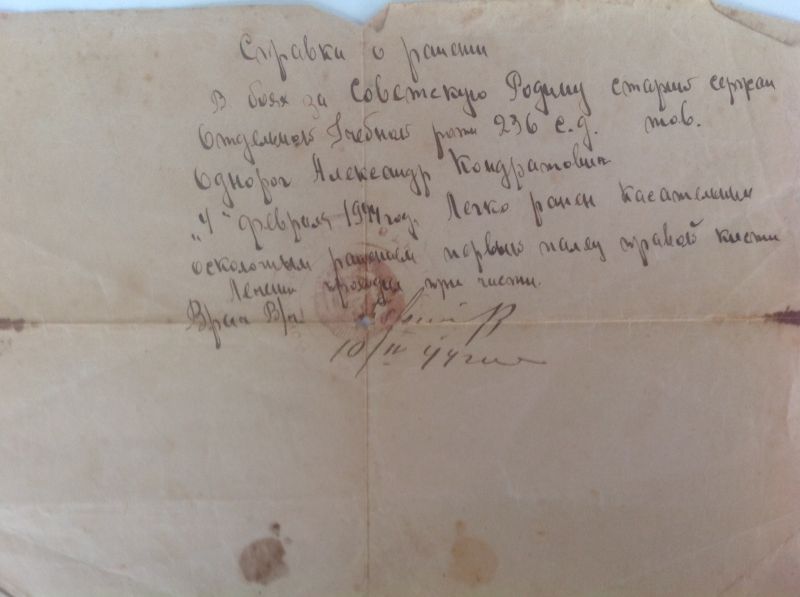 Справка о ранении
В боях за Советскую Родину старший сержан
Отдельной Учебной роты 236 с.д. тов.
Однорог Александр Кондратович
"4" февраля 1944 год. Легко ранен касательным
осколочным ранением первый палец правой кисти
Лечение проходил при части.
Врач
10/II 44